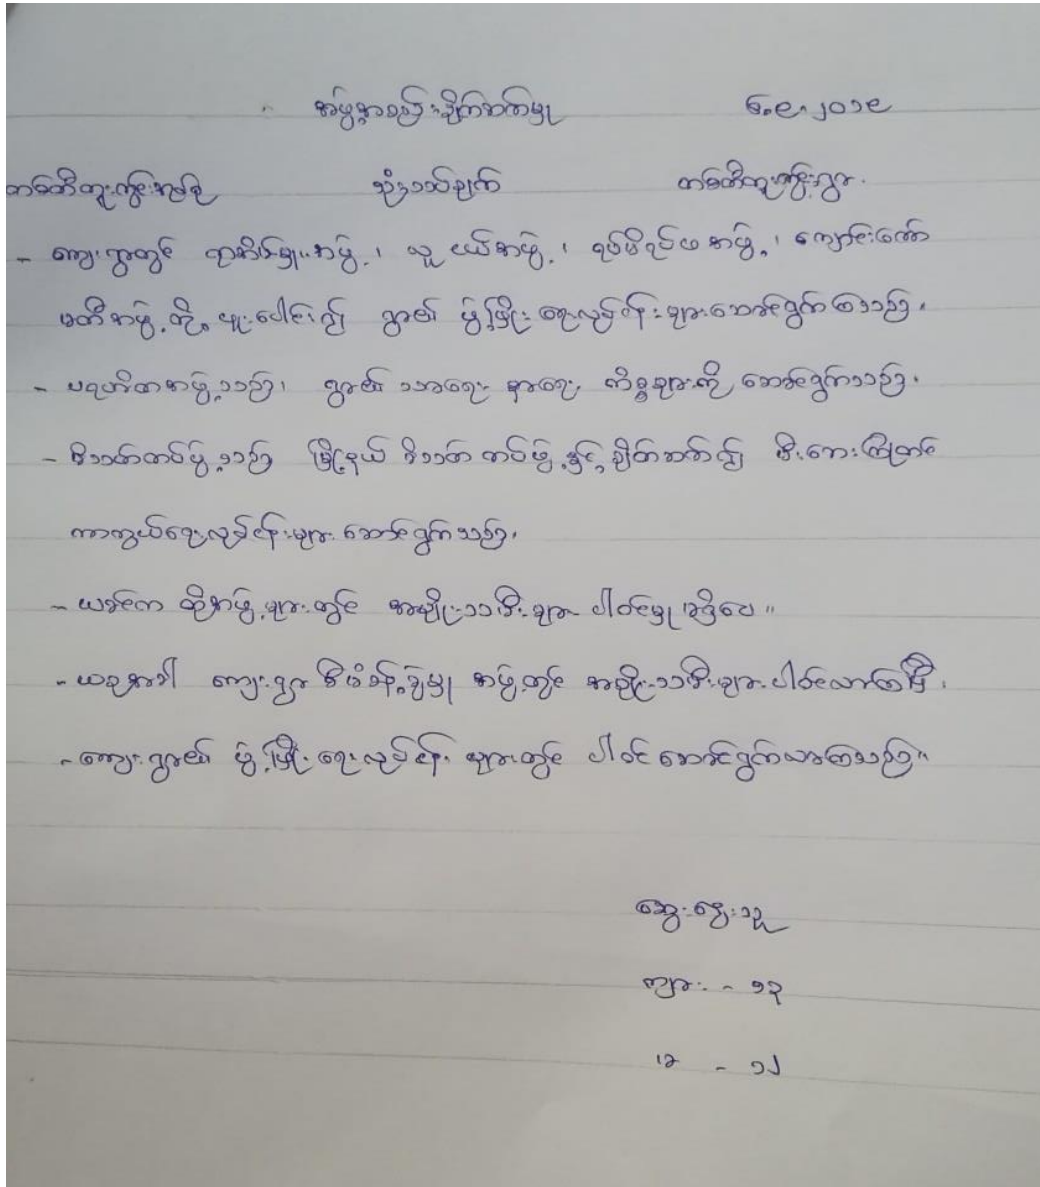 အဖွဲ့အစည်းချိတ်ဆက်မှု ၆.၉.၂၀၁၉
တစ်ထီတူးကွင်းအုပ်စု သုံးသပ်ချက် တစ်ထီတူးကွင်းရွာ.
- ကျေးရွာတွင် ရာအိမ်မှူးအဖွဲ့၊ လူငယ်အဖွဲ့၊ ရပ်မိရပ်ဖအဖွဲ့၊ ကျောင်းကော်
မတီအဖွဲ့တို့ ပူးပေါင်း၍ ရွာ၏ ဖွံ့ဖြိုးရေးလုပ်ငန်းများဆောင်ရွက်ကြသည်။
- ပရဟိတအဖွဲ့သည်၊ ရွာ၏ သာရေး နာရေး ကိစ္စများကို ဆောင်ရွက်သည်။
- မီးသတ်တပ်ဖွဲ့သည် မြို့နယ် မီးသတ်တပ်ဖွဲ့နှင့် ချိတ်ဆက်၍ မီးဘေးကြိုတင်
ကာကွယ်ရေးလုပ်ငန်းများ ဆောင်ရွက်သည်။
- ယခင်က ထိုအဖွဲ့များတွင် အမျိုးသမီးများ ပါဝင်မှု မရှိပေ။
- ယခုအခါ ကျေးရွာစီမံခန့်ခွဲမှု အဖွဲ့တွင် အမျိုးသမီးများ ပါဝင်လာကြပြီ။
- ကျေးရွာ၏ ဖွံ့ဖြိုးရေးလုပ်ငန်းများတွင် ပါဝင်ဆောင်ရွက်လာကြသည်။
ဆွေးနွေးသူ
ကျား - ၁၃
မ - ၁၂